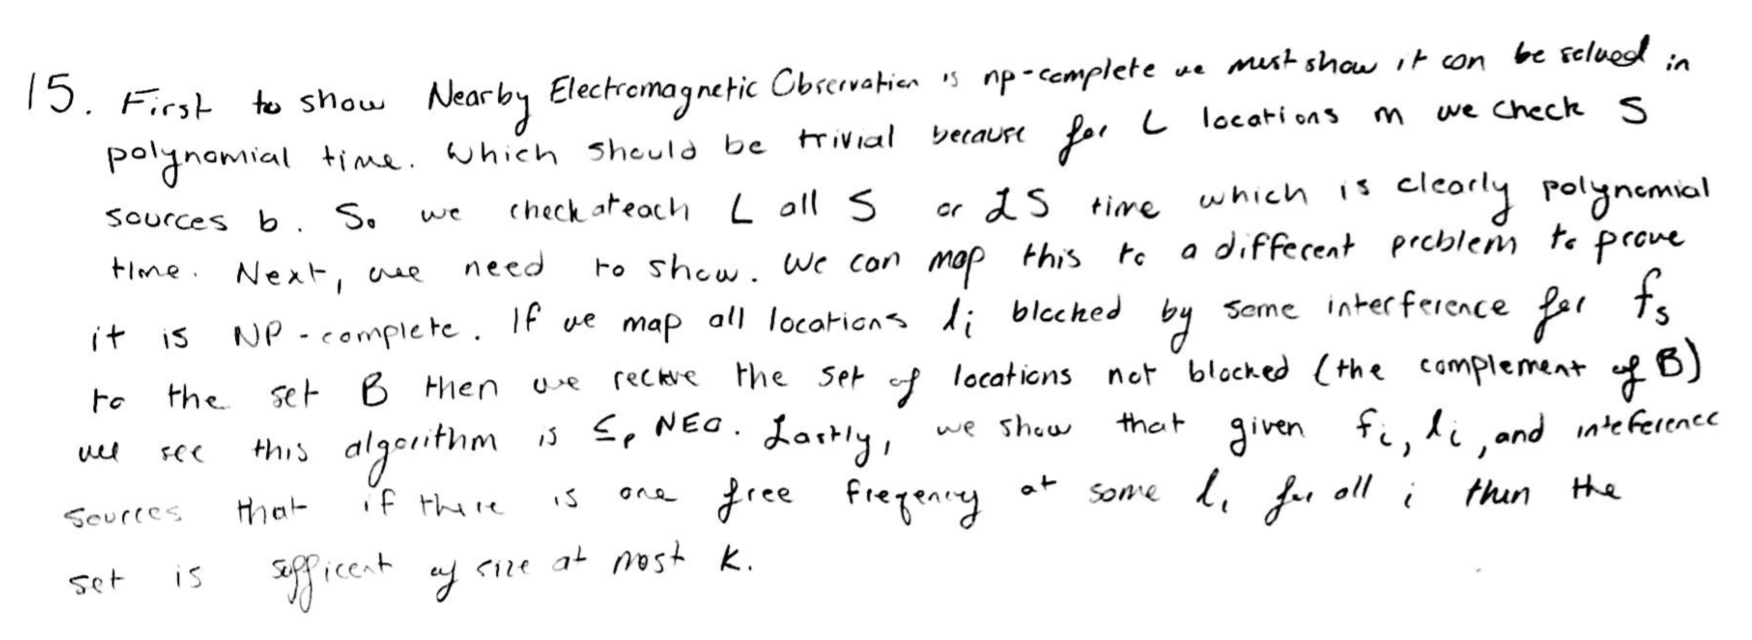 15. First to show Nearby Electromagnetic Observation is np-complete we must show it can be solved in
polynomial time. Which should be trivial because for L locations m we check S
sources b. So we check at each L all S or LS time which is clearly polynomial
time. Next, we need to show. We can map this to a different problem to prove
it is NP-complete. If we map all locations li blocked by some interference for fs
to the set B then we recieve the set of locations not blocked (the complement of B)
we see this algorithm is ≤p NEO. Lastly, we show that given fi, li, and inteference
sources that if there is one free freqency at some li for all i then the
set is sufficent of size at most k.